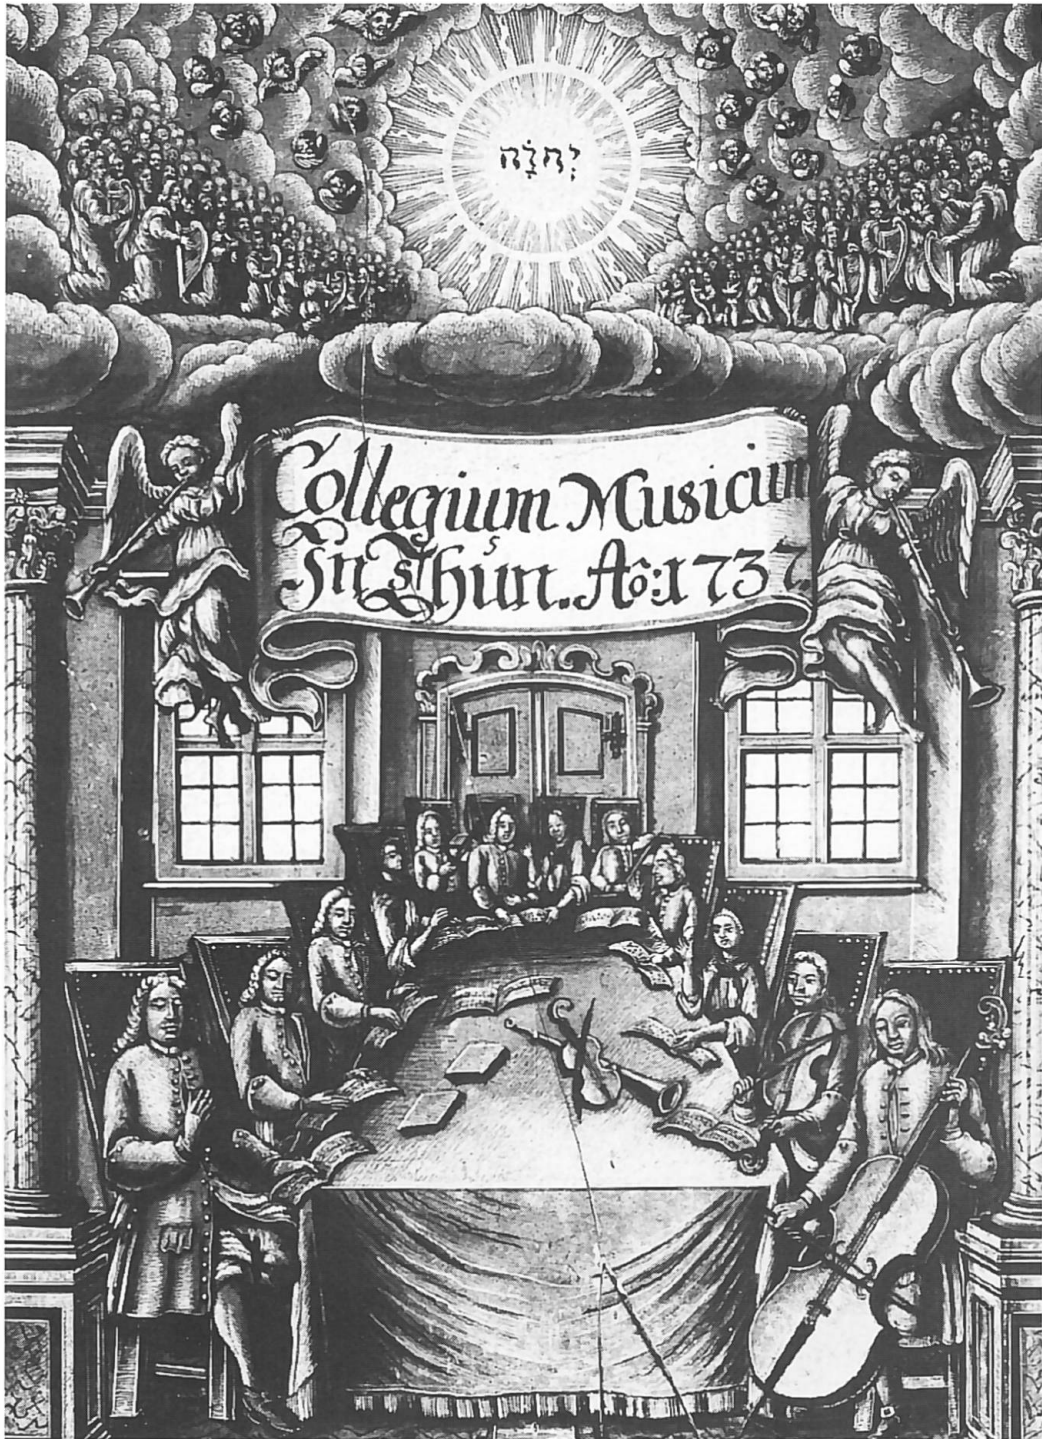 יְהוָֹה
Collegium Musicum
In Thun. Aô: 1737